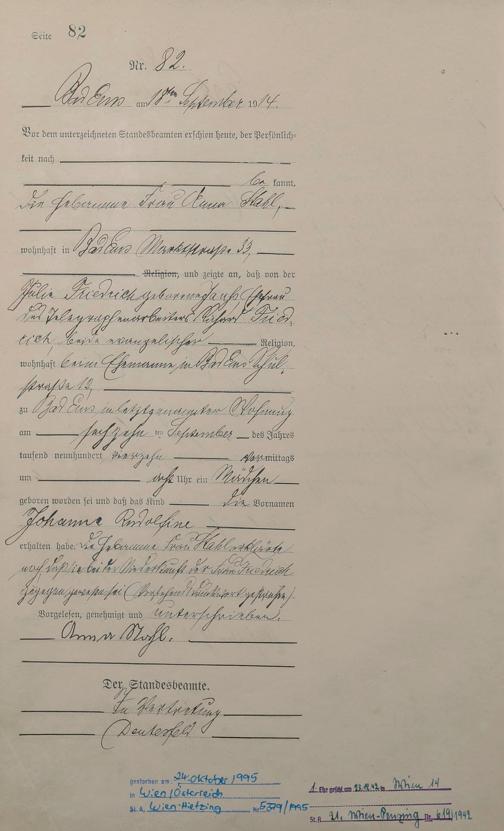 Seite 82
Nr. 82.
Bad Ems am 18ten September 1914.
Vor dem unterzeichneten Standesbeamten erschien heute, der Persönlich-
keit nach
be kannt,
die Hebamme Frau Anna Stahl,
wohnhaft in Bad Ems Marktstraße 33,
Religion, und zeigte an, daß von der
Julie Friedrich geborene Ehefrau
des Telegraphenarbeiters Fried-
rich, beide evangelischer Religion,
wohnhaft beim Ehemanne in Bad Ems Schul-
straße 12,
zu Bad Ems in letztgenannter Wohnung
am sechzehn ten September des Jahres
tausend neunhundert vierzehn vormittags
um acht Uhr ein Mädchen
geboren worden sei und daß das Kind die Vornamen
Johanna Rudolfine
erhalten habe. Die Hebamme Frau Stahl erklärte
noch daß sie bei der Niederkunft der Frau Friedrich
zugegen gewesen sei (Vorstehend Druckwort gestrichen).
Vorgelesen, genehmigt und unterschrieben.
Anna Stahl.
Der Standesbeamte.
In Vertretung
gestorben am 24. Oktober 1995
in Wien/Österreich
St.A. Wien-Hietzing Nr 5379/1995
1. Ehe geschl. am in Wien 14
St.A. 21. Wien-Penzing Nr. 619/1942